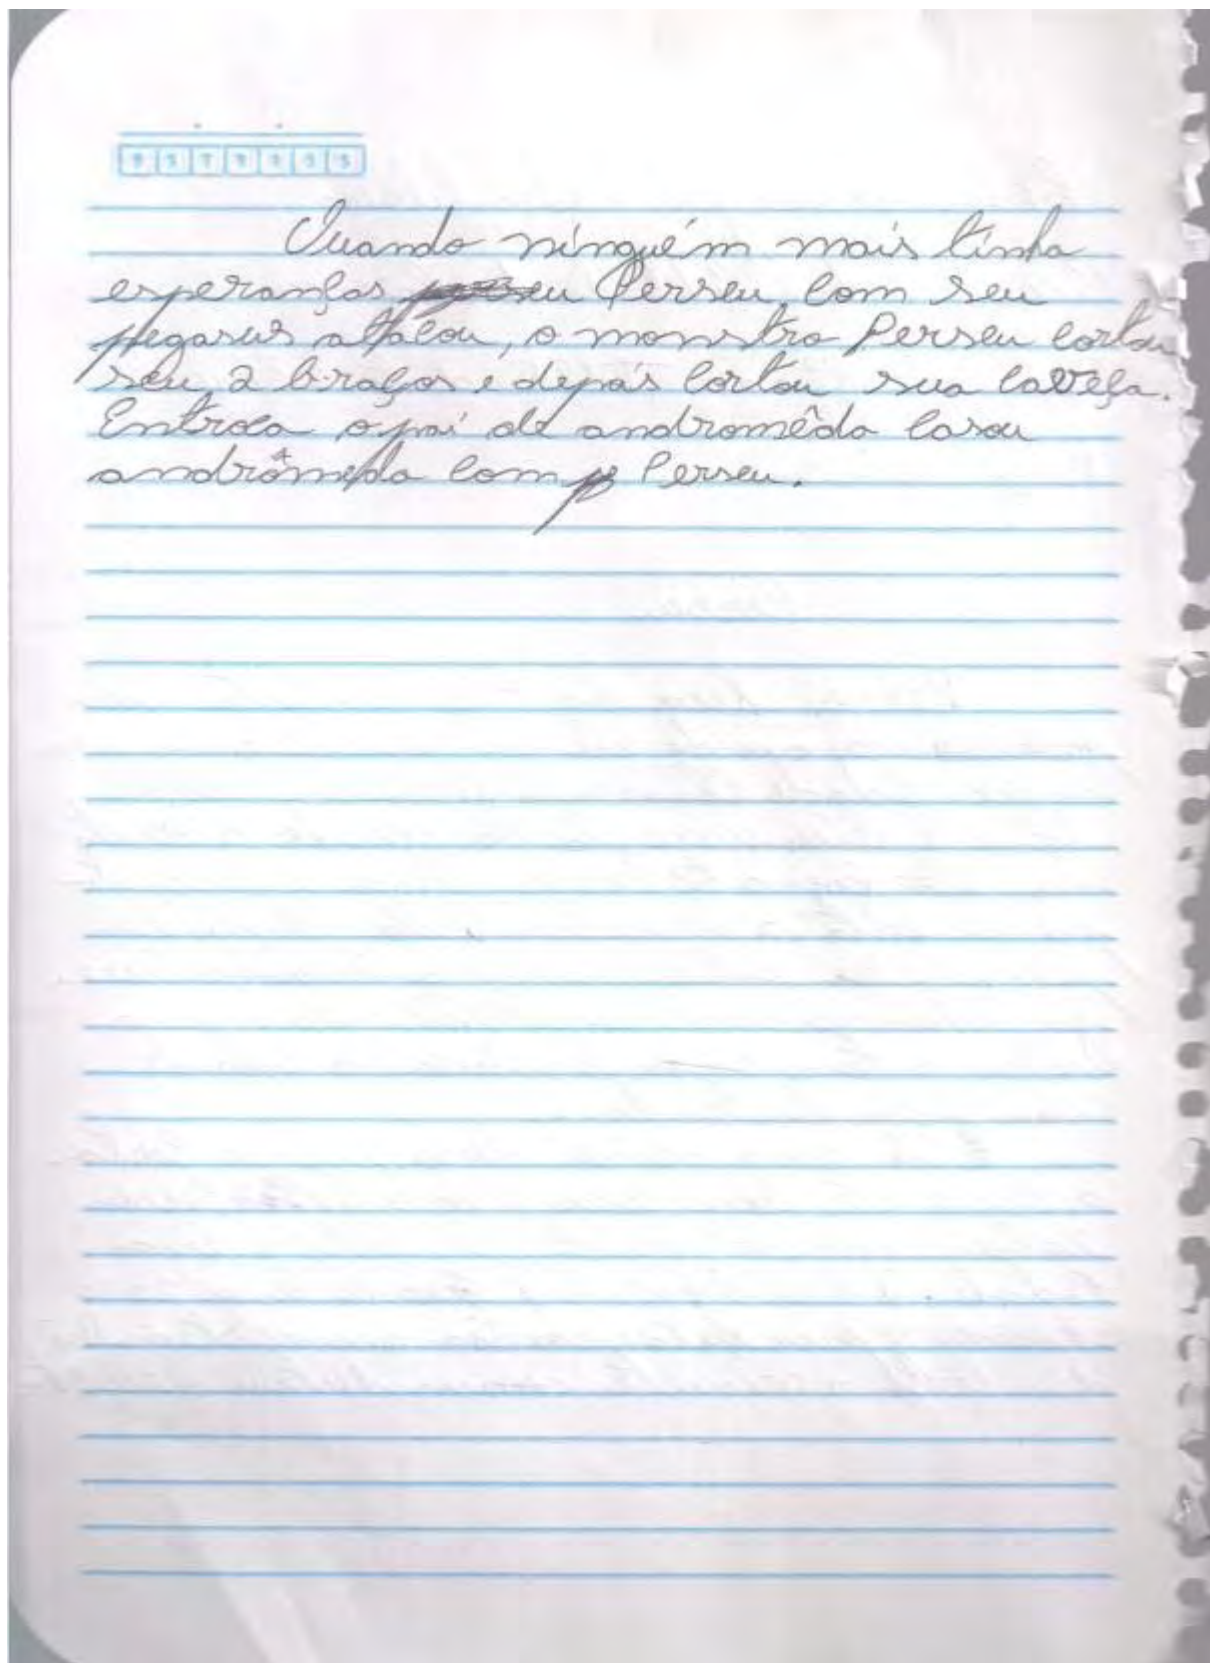 Quando ninguém mais tinha
esperanças Perseu com seu
pegasus attacou, o monstro Perseu cortou
seu 2 braços e depois cortou sua caveça.
Entroca o pai de andromêda casou
andrômeda com Perseu.